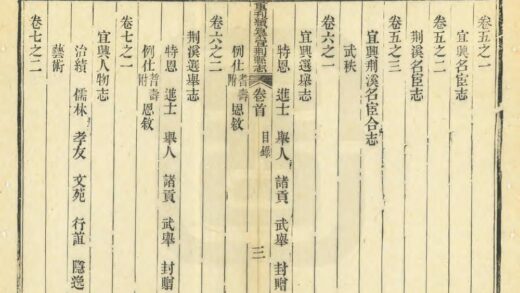 卷五之一
宜興名臣志
卷五之二
荆溪名臣志
卷五之三
宜興荆溪名臣合志
武秩
卷六之一
宜興選舉志
特恩 進士 舉人 諸貢 武舉 封贈
例仕 耆壽附 恩敘
重刊續纂宜荆縣志 卷首 目錄 三
卷六之二
荆溪選舉志
特恩 進士 舉人 諸貢 武舉 封贈
例仕 耆壽附 恩敘
卷七之一
宜興人物志
治績 儒林 孝友 文苑 行誼 隱逸
藝術
卷七之二